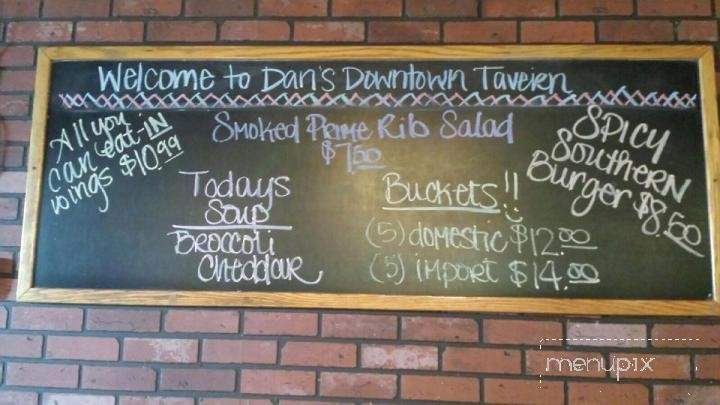 Welcome to Dan's Downtown Tavern
All you
can eat-IN
wings $10.99
Smoked Prime Rib Salad
$7.50
Spicy
Southern
Burger $8.50
Todays
Soup
Broccoli
Cheddar
Buckets!!
(5) domestic $12.00
(5) import $14.00
menupix